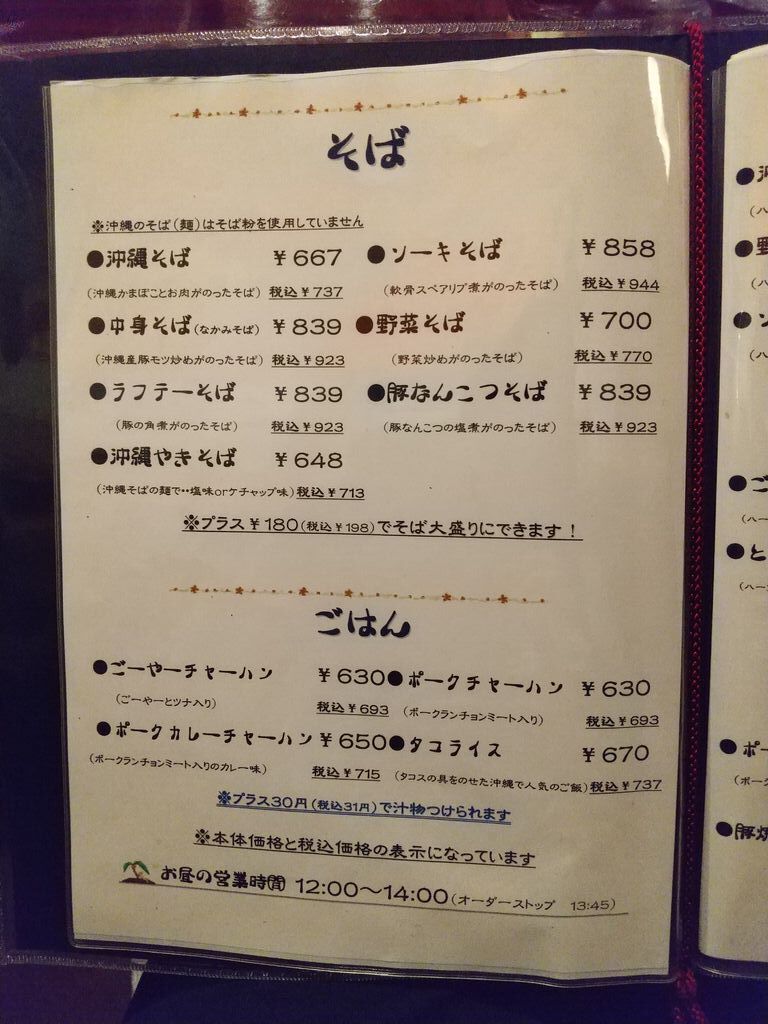 そば
※沖縄のそば(麺)はそば粉を使用していません
●沖縄そば ¥667 ●ソーキそば ¥858
(沖縄かまぼことお肉がのったそば) 税込¥737 (軟骨スペアリブ煮がのったそば) 税込¥944
●中身そば(なかみそば) ¥839 ●野菜そば ¥700
(沖縄産豚モツ炒めがのったそば) 税込¥923 (野菜炒めがのったそば) 税込¥770
●ラフテーそば ¥839 ●豚なんこつそば ¥839
(豚の角煮がのったそば) 税込¥923 (豚なんこつの塩煮がのったそば) 税込¥923
●沖縄やきそば ¥648
(沖縄そばの麺で・・塩味orケチャップ味) 税込¥713
※プラス¥180(税込¥198)でそば大盛りにできます!
ごはん
●ごーやーチャーハン ¥630 ●ポークチャーハン ¥630
(ごーやーとツナ入り) 税込¥693 (ポークランチョンミート入り) 税込¥693
●ポークカレーチャーハン ¥650 ●タコライス ¥670
(ポークランチョンミート入りのカレー味) 税込¥715 (タコスの具をのせた沖縄で人気のご飯) 税込¥737
※プラス30円(税込31円)で汁物つけられます
※本体価格と税込価格の表示になっています
お昼の営業時間 12:00~14:00(オーダーストップ 13:45)
(ハ
●ご
(ハー
●と
(ハー
●ポー
(ポーク